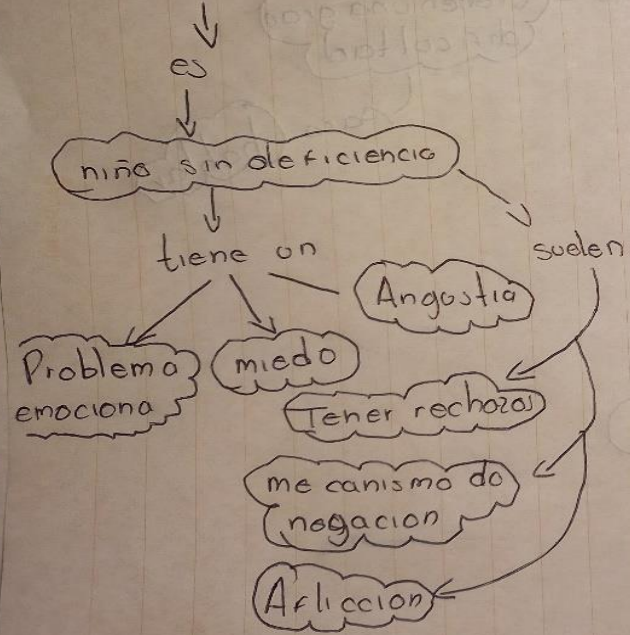 es
niño sin deficiencia
tiene un
suelen
Angustia
Problema
emociona
miedo
Tener rechazos
mecanismo de
negacion
Afliccion